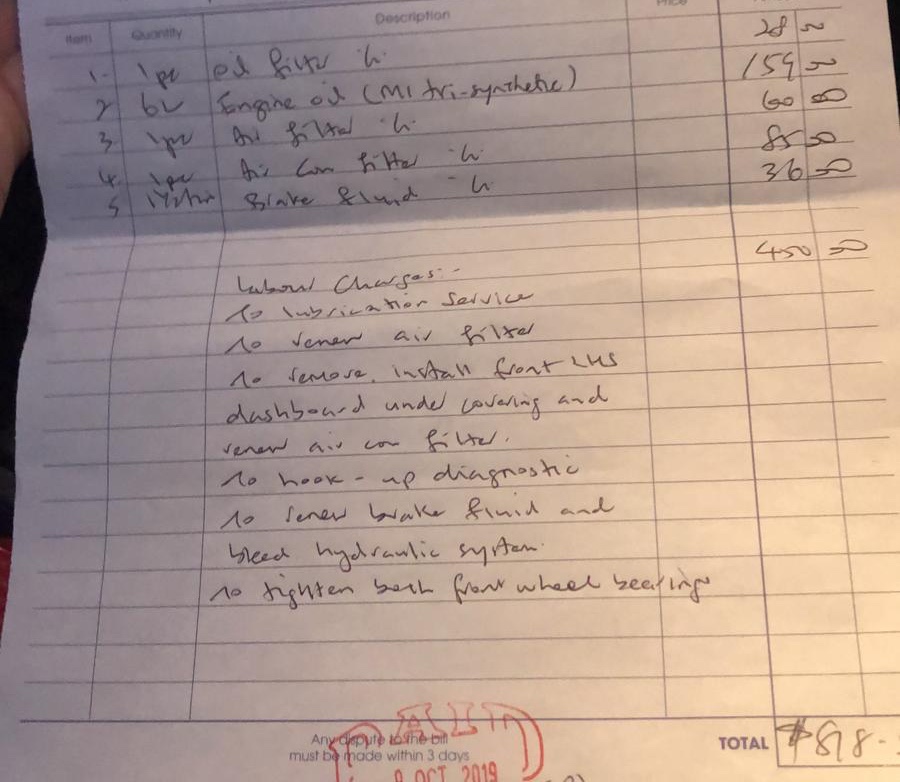 Item Quantity Description Price
1. 1pc oil filter 28 00
2 6L Engine oil (M1 tri-synthetic) 159 00
3 1pc Air filter 60 00
4. 1pc Air con filter 85 00
5 Brake fluid 36 00
Labour Charges:- 450 00
To lubrication service
To renew air filter
To remove, install front LHS
dashboard under covering and
renew air con filter.
To hook-up diagnostic
To renew brake fluid and
bleed hydraulic system.
To tighten both front wheel bearings
PAID
Any dispute to the bill
must be made within 3 days
TOTAL $818-
OCT 2019